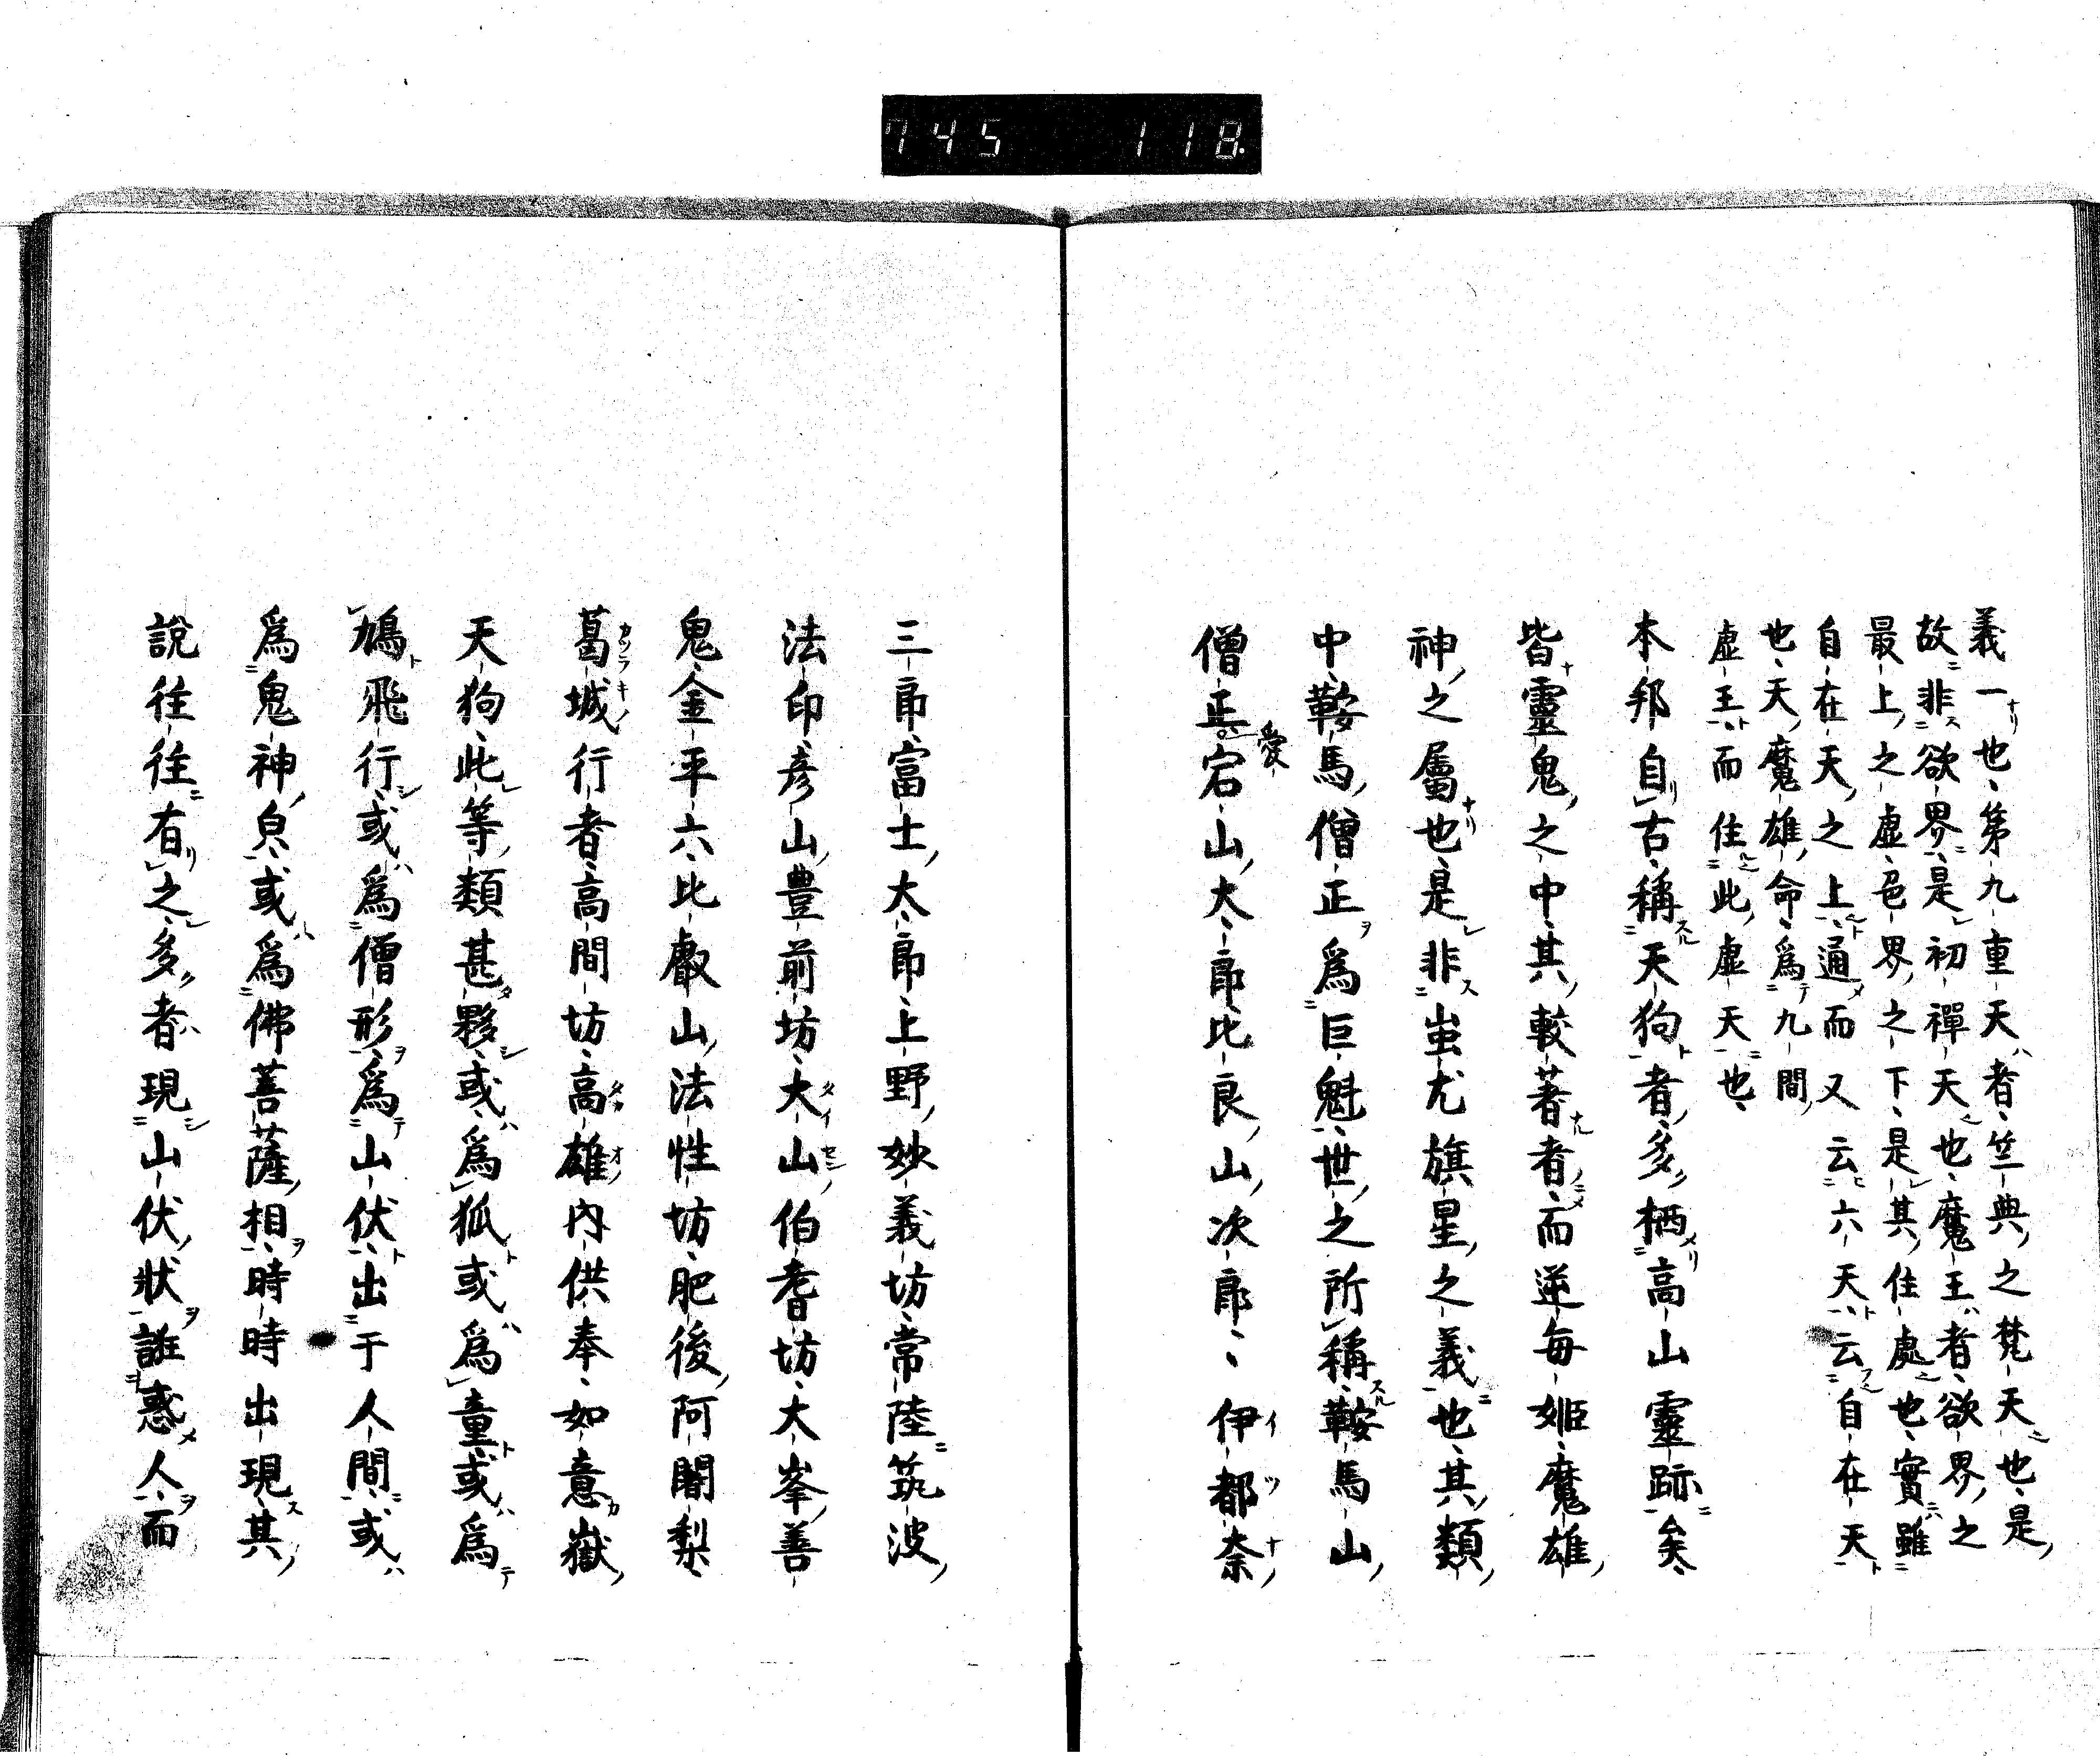 745 118
義一也、第九重天者、竺典之梵天也、是
故非欲界、是初禪天也、魔王者、欲界之
最上之虛、色界之下、是其住處也、實雖
自在天之上通而又云六天、云自在天
也、天魔雄命爲九間
虛王、而住此虛天也、
本邦自古稱天狗者、多栖高山靈跡矣、
皆靈鬼之中其較著者、而逆每姬魔雄
神之屬也、是非蚩尤旗星之義也、其類
中、鞍馬僧正爲巨魁、世之所稱鞍馬山
僧正。愛宕山大郎、比良山次郎、、伊都奈
三郎、富士大郎、上野妙義坊、常陸筑波
法印、彥山豊前坊、大山伯耆坊、大峯善
鬼、金平六、比叡山法性坊、肥後阿闍梨、
葛城行者、高間坊、高雄內供奉、如意嶽
天狗、此等類甚夥、或爲狐、或爲童、或爲
鳩飛行、或爲僧形、爲山伏、出于人間、或
爲鬼神皃、或爲佛菩薩相、時時出現、其
說往往有之、多者現山伏狀、誑惑人、而